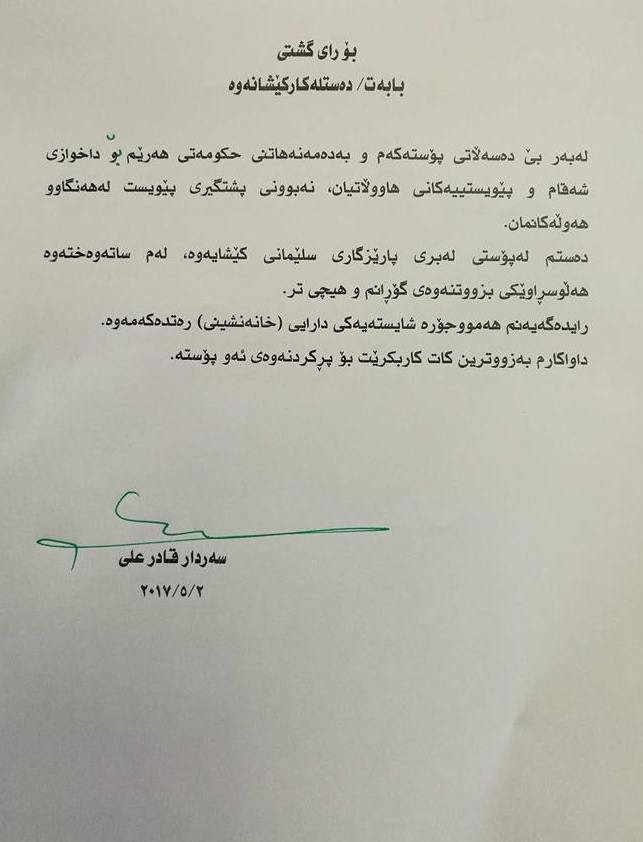 بۆ رای گشتی
بابەت/ دەستلەکارکێشانەوە
لەبەر بێ دەسەڵاتی پۆستەکەم و بەدەمەنەهاتنی حکومەتی هەرێم بۆ داخوازی
شەقام و پێویستییەکانی هاووڵاتیان، نەبوونی پشتگیری پێویست لەهەنگاوو
هەوڵەکانمان.
دەستم لەپۆستی لەبری پارێزگاری سلێمانی کێشایەوە، لەم ساتەوەختەوە
هەڵوسڕاوێکی بزووتنەوەی گۆڕانم و هیچی تر.
رایدەگەیەنم هەمووجۆرە شایستەیەکی دارایی (خانەنشینی) رەتدەکەمەوە.
داواکارم بەزووترین کات کاربکرێت بۆ پڕکردنەوەی ئەو پۆستە.
سەردار قادر علی
٢٠١٧/٥/٢